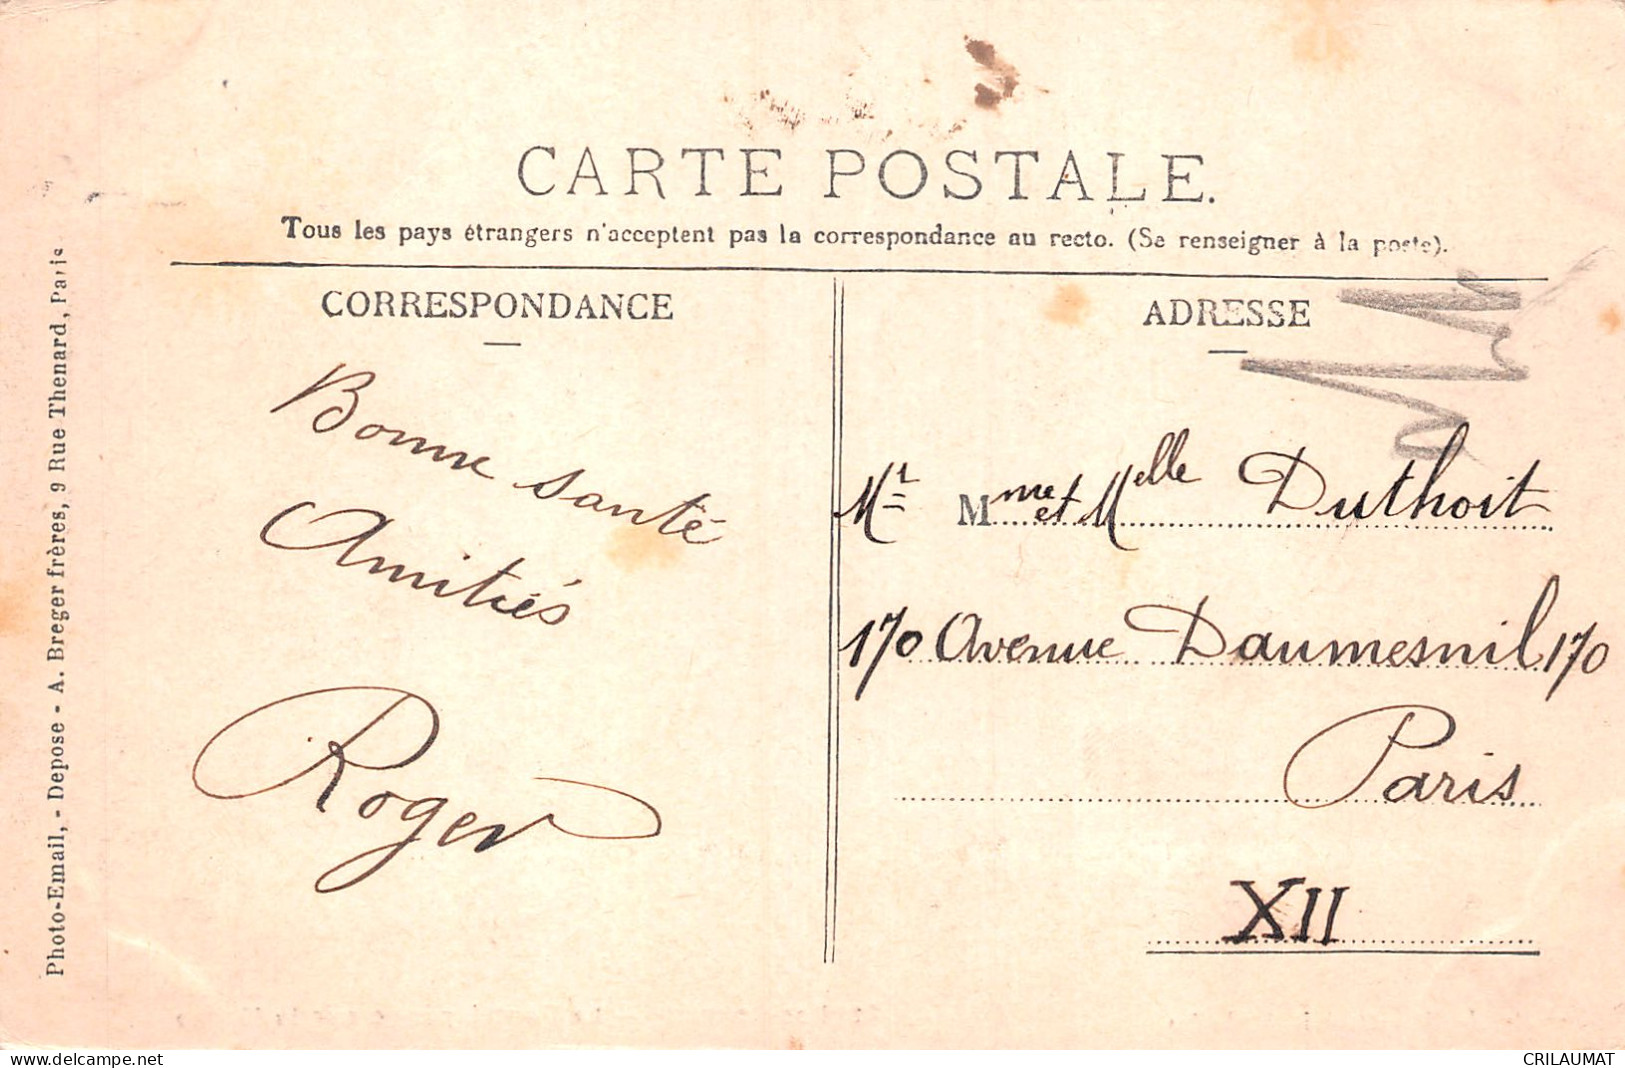 CARTE POSTALE.
Tous les pays étrangers n'acceptent pas la correspondance au recto. (Se renseigner à la poste).
CORRESPONDANCE
Bonne santé
Amitiés
Roger
ADRESSE
Mr Mme et Melle Duthoit
170 Avenue Daumesnil 170
Paris
XII
Photo-Email, - Depose - A. Breger frères, 9 Rue Thenard, Paris
www.delcampe.net
CRILAUMAT